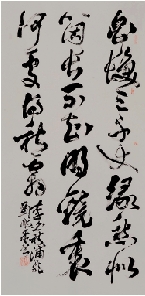 白髮三千丈緣愁似
箇長不知明鏡裏
何處得秋霜
李白秋浦歌